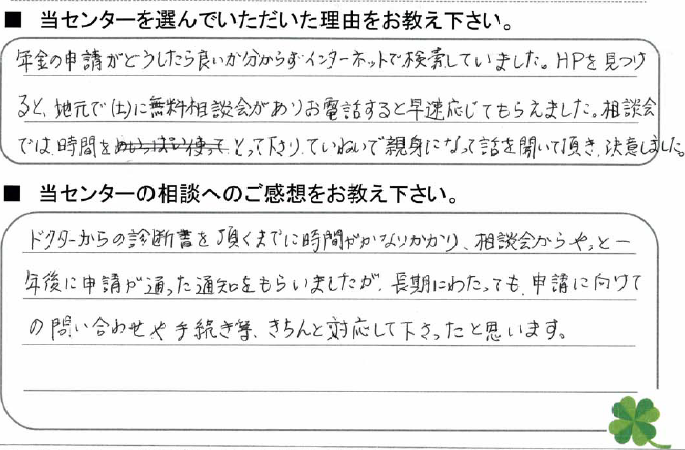 ■ 当センターを選んでいただいた理由をお教え下さい。
年金の申請がどうしたら良いか分からずインターネットで検索していました。HPを見つけ
ると、地元で(土)に無料相談会がありお電話すると早速応じてもらえました。相談会
では、時間をめいっぱい使って とって下さり、ていねいで親身になって話を聞いて頂き、決意しました。
■ 当センターの相談へのご感想をお教え下さい。
ドクターからの診断書を頂くまでに時間がかなりかかり、相談会からやっと一
年後に申請が通った通知をもらいましたが、長期にわたっても、申請に向けて
の問い合わせや手続き等、きちんと対応して下さったと思います。